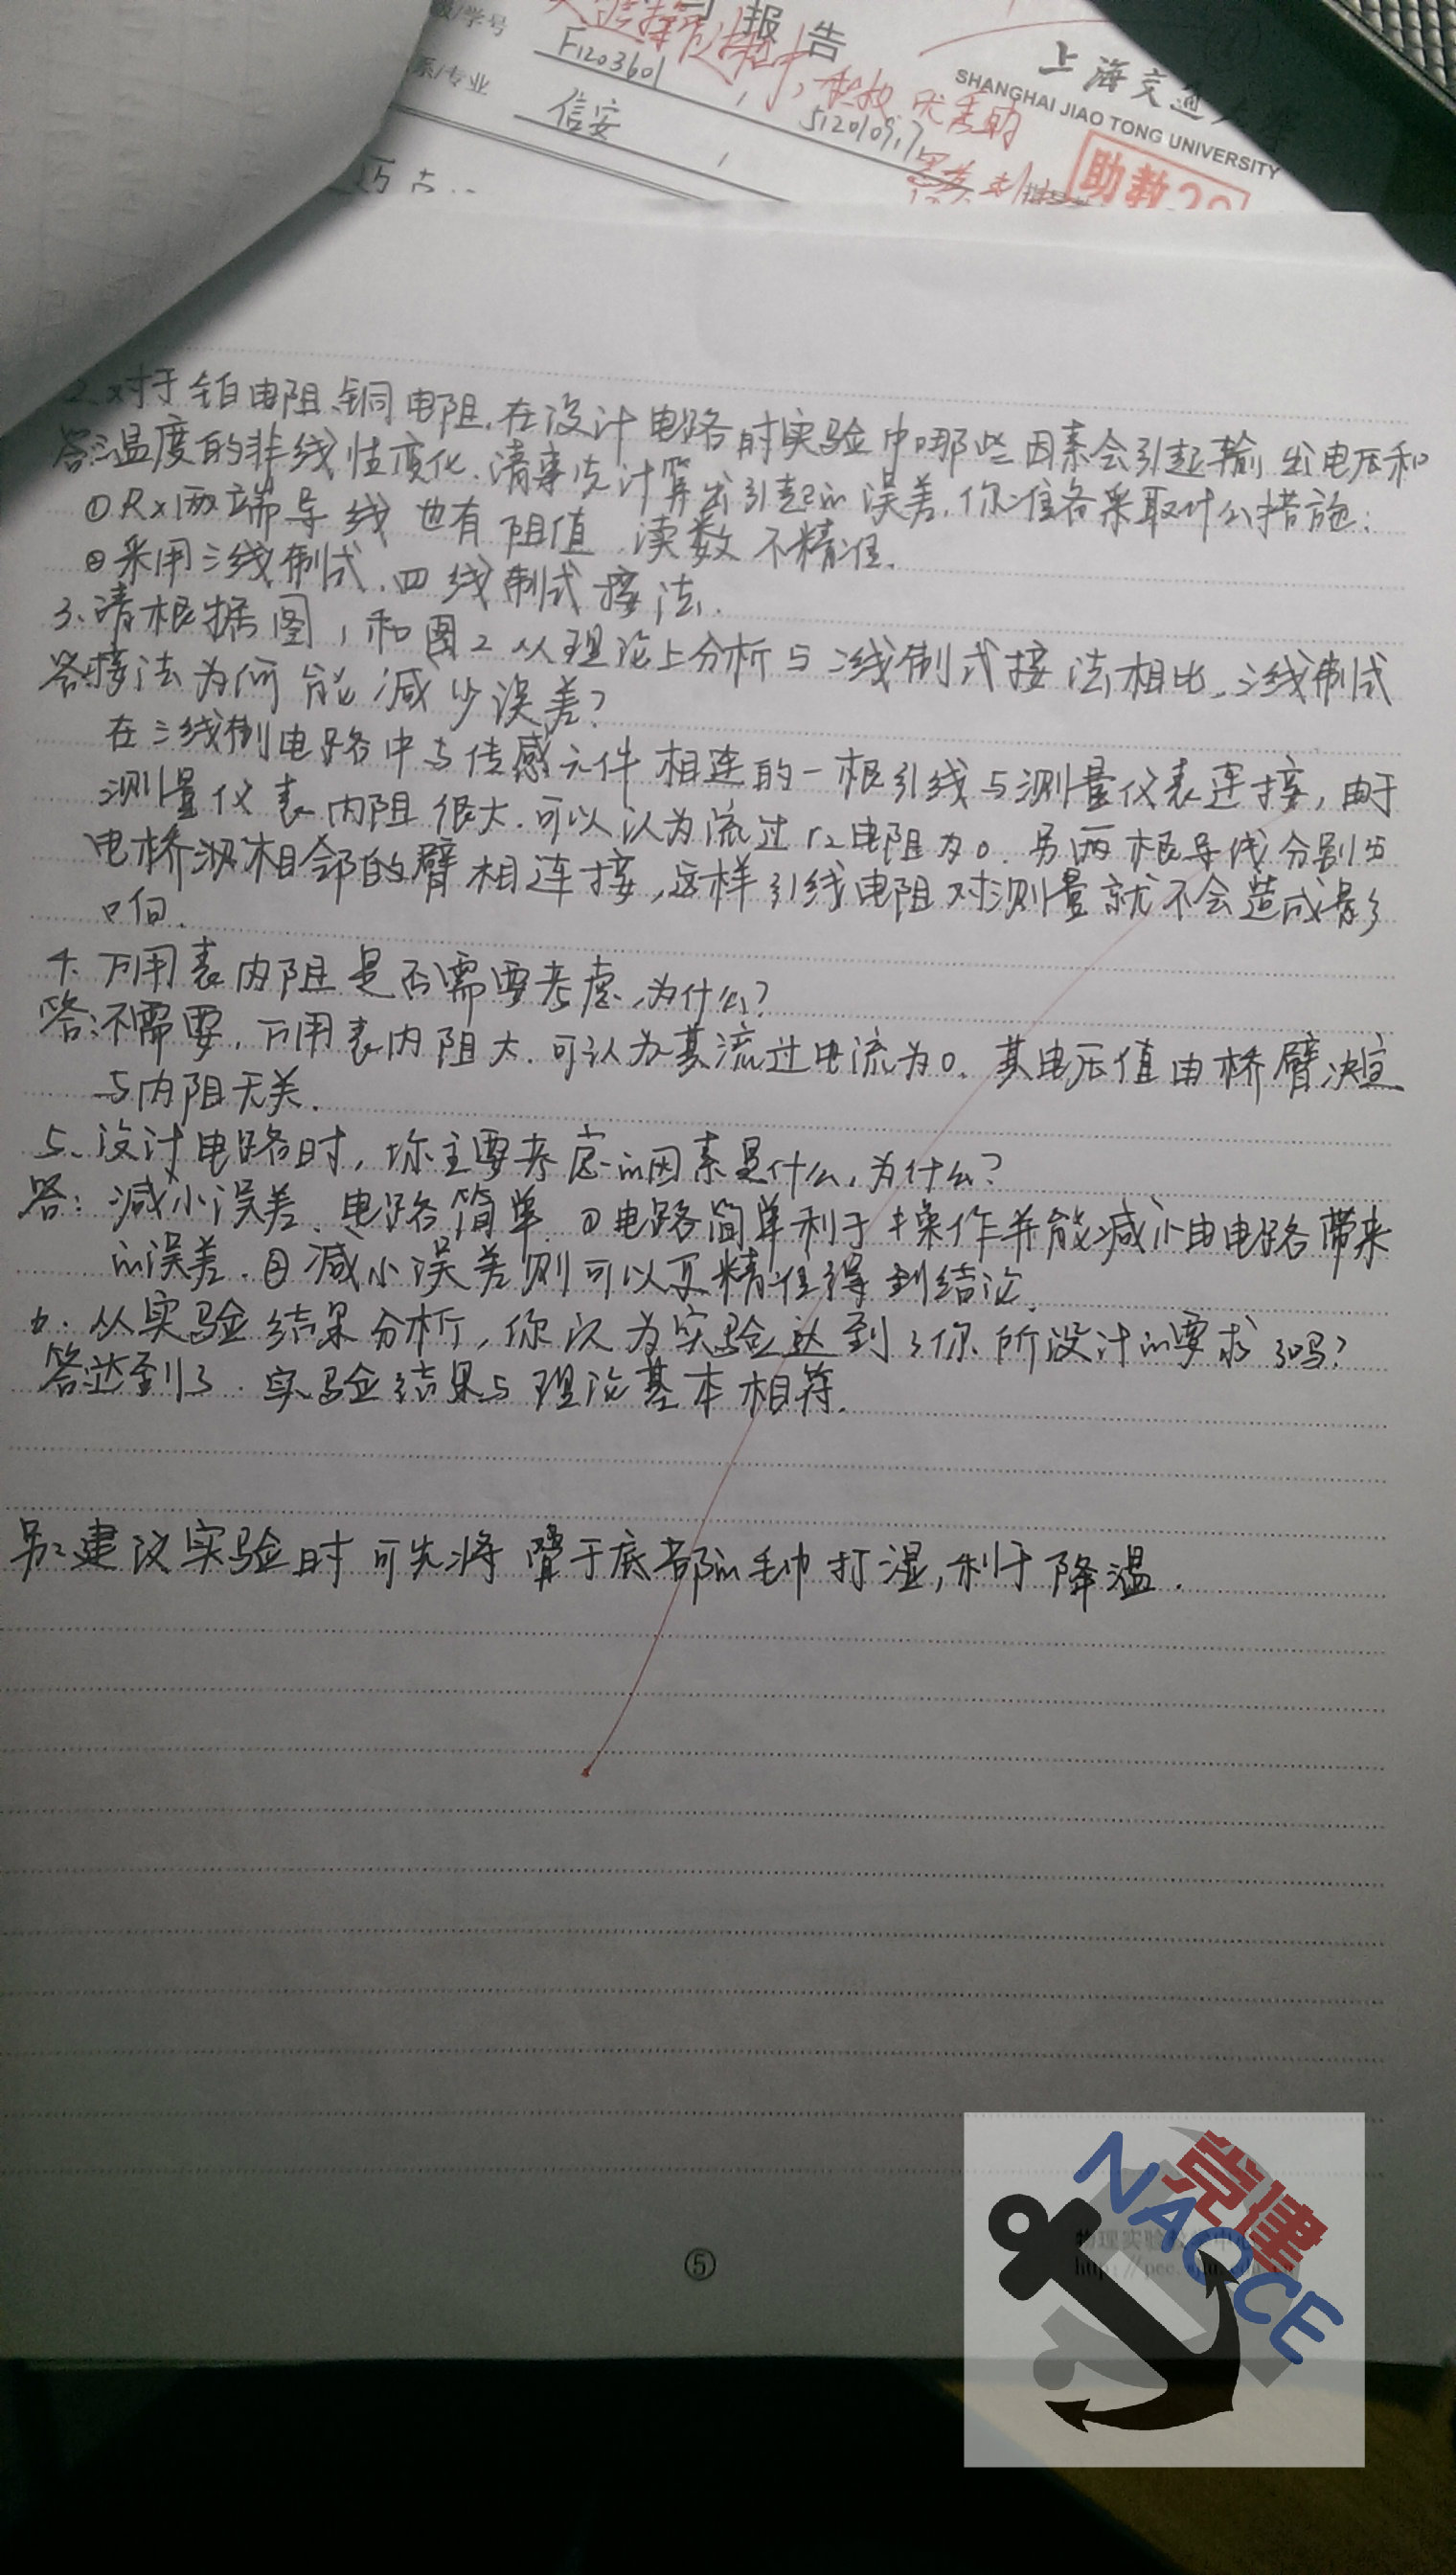 级/学号
F1203601
报告
上海交通大学
SHANGHAI JIAO TONG UNIVERSITY
系/专业
信安
助教
2、对于铂电阻、铜电阻，在设计电路时实验中哪些因素会引起输出电压和
答：温度的非线性变化、请事先计算出引起的误差，你准备采取什么措施：
①Rx两端导线也有阻值，读数不精准.
②采用三线制式、四线制式接法.
3、请根据图1和图2从理论上分析与二线制式接法相比，三线制式
答接法为何能减少误差？
在三线制电路中与传感元件相连的一根引线与测量仪表连接，由于
测量仪表内阻很大.可以认为流过r2电阻为0.另两根导线分别与
电桥相邻的臂相连接，这样引线电阻对测量就不会造成影
响.
4、万用表内阻是否需要考虑，为什么？
答：不需要，万用表内阻大.可认为其流过电流为0.其电压值由桥臂决定
与内阻无关.
5、设计电路时，你主要考虑的因素是什么，为什么？
答：减小误差、电路简单.①电路简单利于操作并能减小由电路带来
的误差.②减小误差则可以更精准得到结论.
6.从实验结果分析，你认为实验达到了你所设计的要求了吗？
答：达到了.实验结果与理论基本相符.
另：建议实验时可先将置于底部的毛巾打湿，利于降温.
⑤
物理实验教学中心
党建
NAOCE